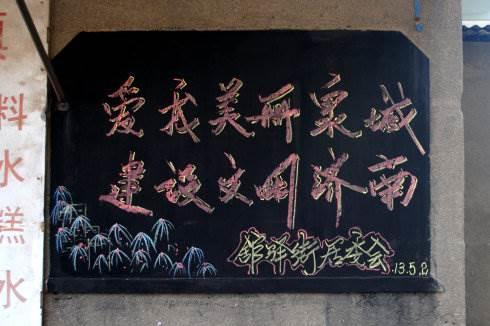 爱我美丽泉城
建设文明济南
馆驿街居委会
13.5.2
真料水糕水